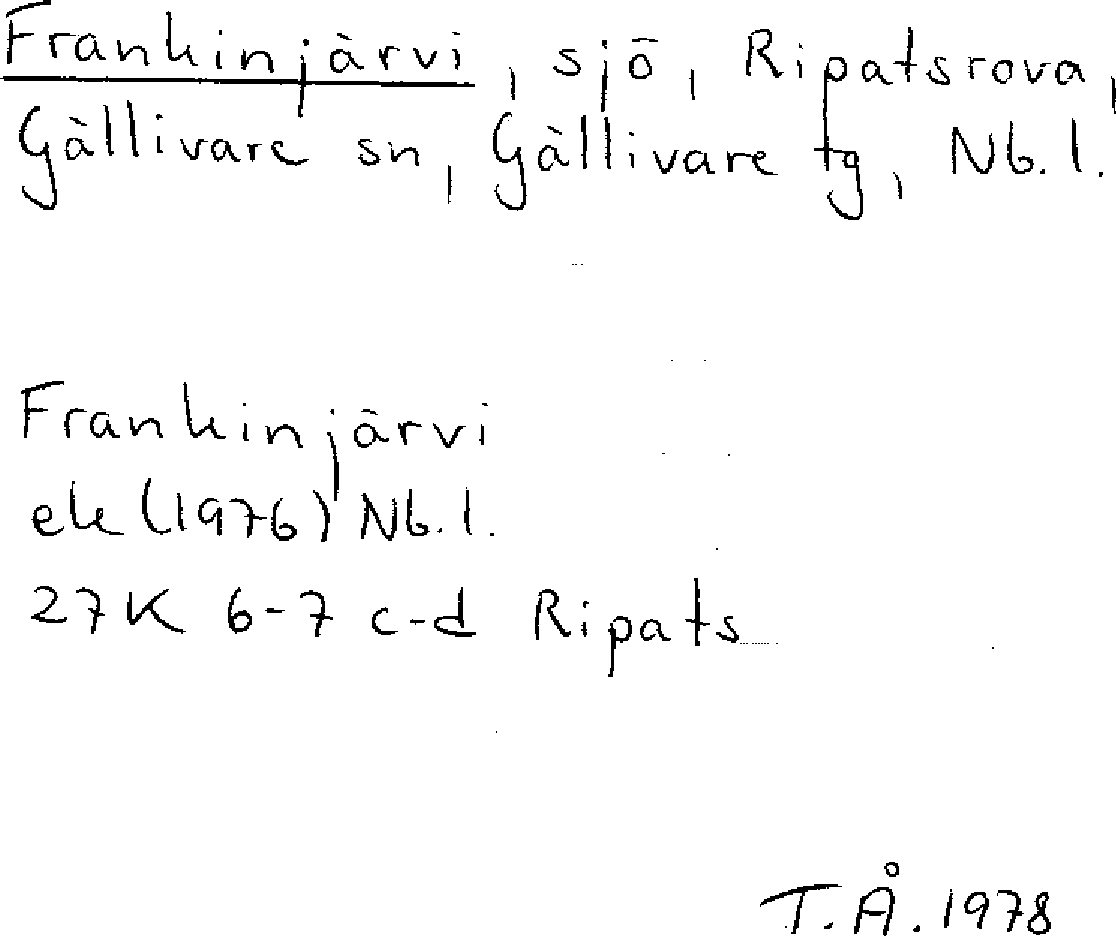 Frankinjärvi, sjö, Ripatsrova,
Gällivare sn, Gällivare tg, Nb. l.
Frankinjärvi
ek (1976) Nb. l.
27K 6-7 c-d Ripats
T. Å. 1978